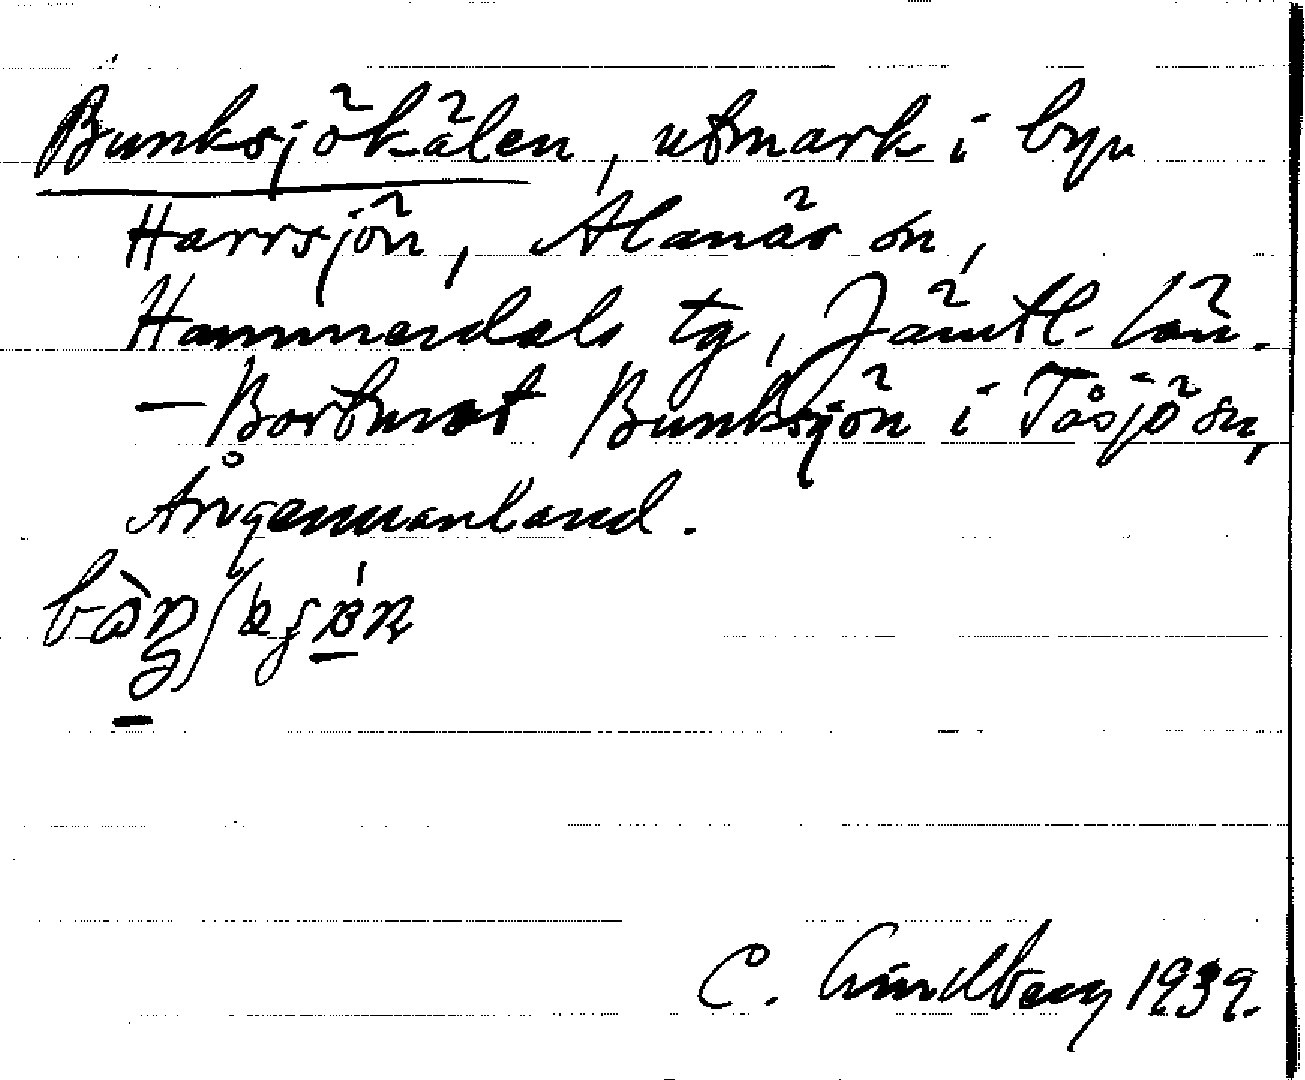 Bunksjökälen, utmark i byn
Harrsjön, Alanäs sn,
Hammerdals tg, Jämtl. län.
— Bortmot Bunksjön i Tåsjö sn,
Ångermanland.
C. Lindberg 1939.